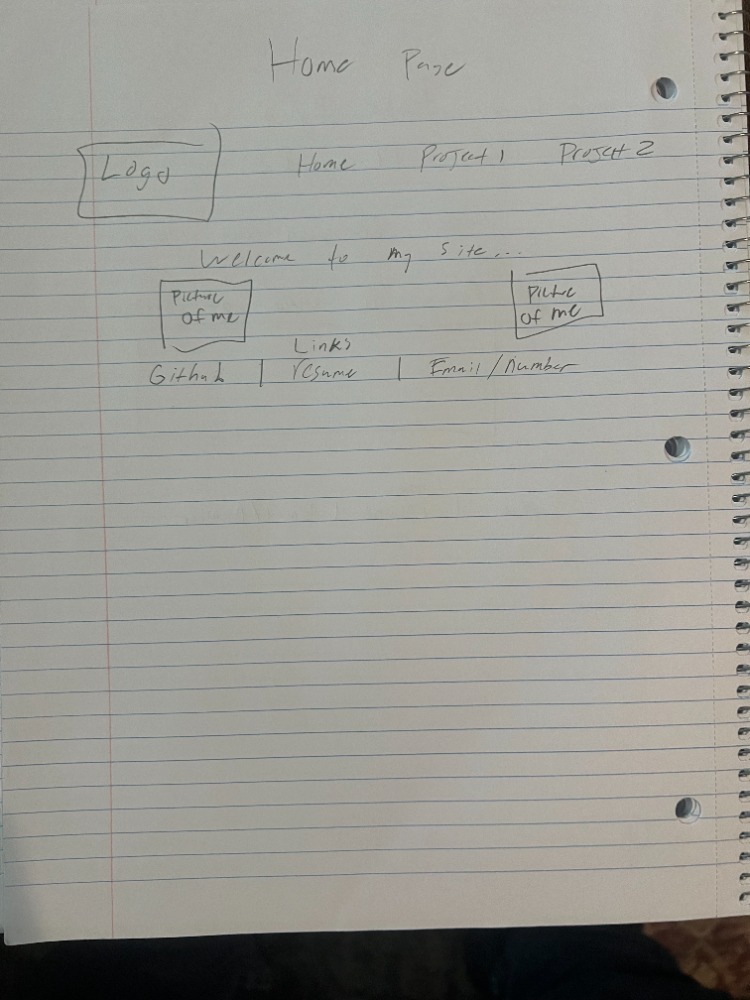 Home Page
Logo Home Project 1 Project 2
Welcome to my site...
Picture of me
Picture of me
Links
Github | resume | Email/number